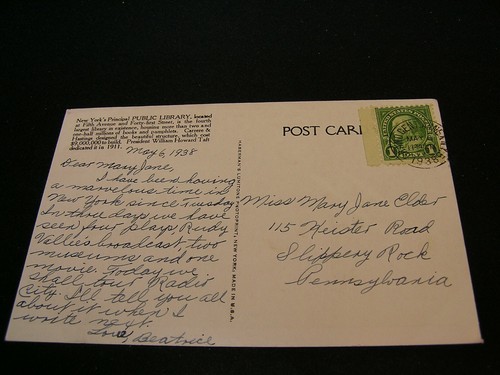 New York's Principal PUBLIC LIBRARY, located
at Fifth Avenue and Forty-first Street, is the fourth
largest library in existence, housing more than two and
one-half millions of books and pamphlets. Carrere &
Hastings designed the beautiful structure, which cost
$9,000,000 to build. President William Howard Taft
dedicated it in 1911.
May 6, 1938
Dear Mary Jane,
I have been having
a marvelous time in
New York since Tuesday.
In three days we have
seen four plays, Rudy
Vallie's broadcast, two
museums and one
movie. Today we
shall tour Radio
City. I'll tell you all
about it when I
write next.
Love, Beatrice
NEW YORK; MADE IN U.S.A.
POST CARD
1¢ 1¢
Miss Mary Jane Elder
115 Keister Road
Slippery Rock
Pennsylvania